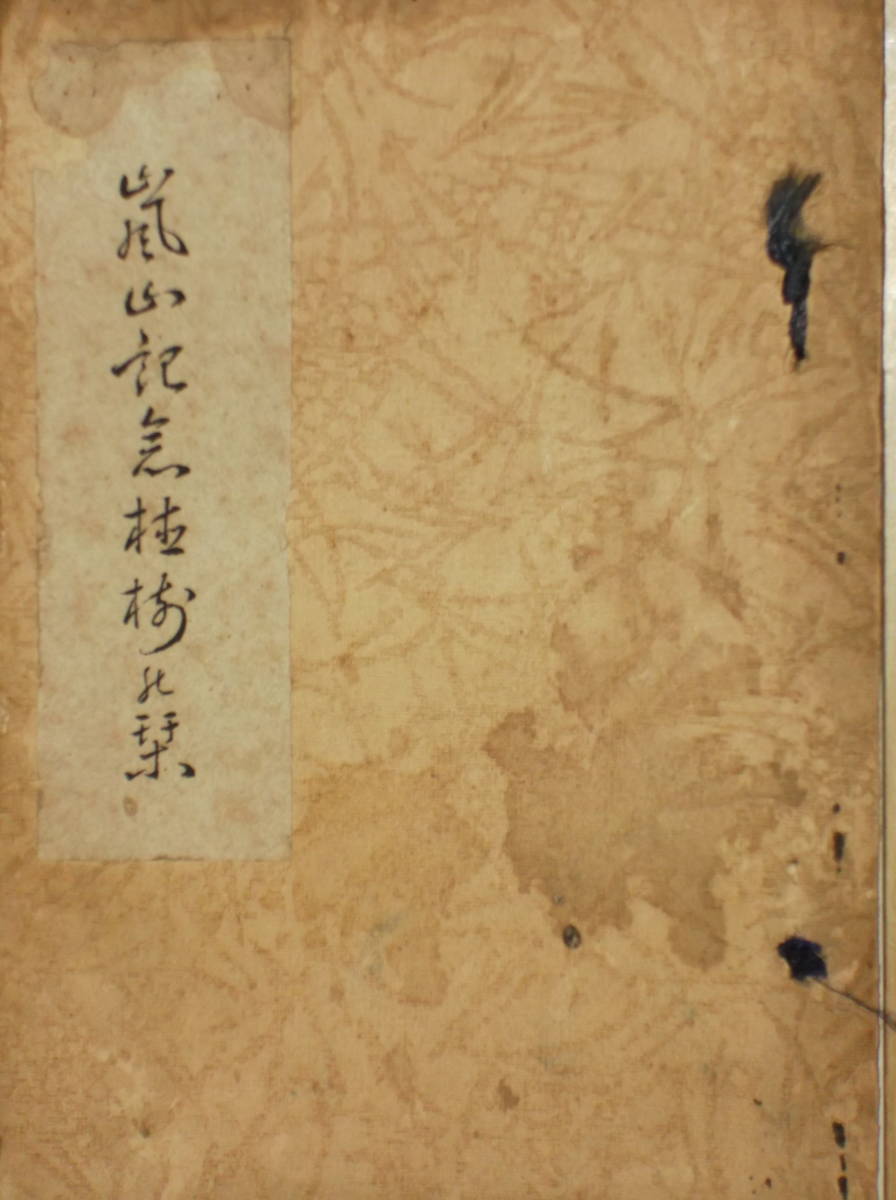 嵐山記念植樹の栞